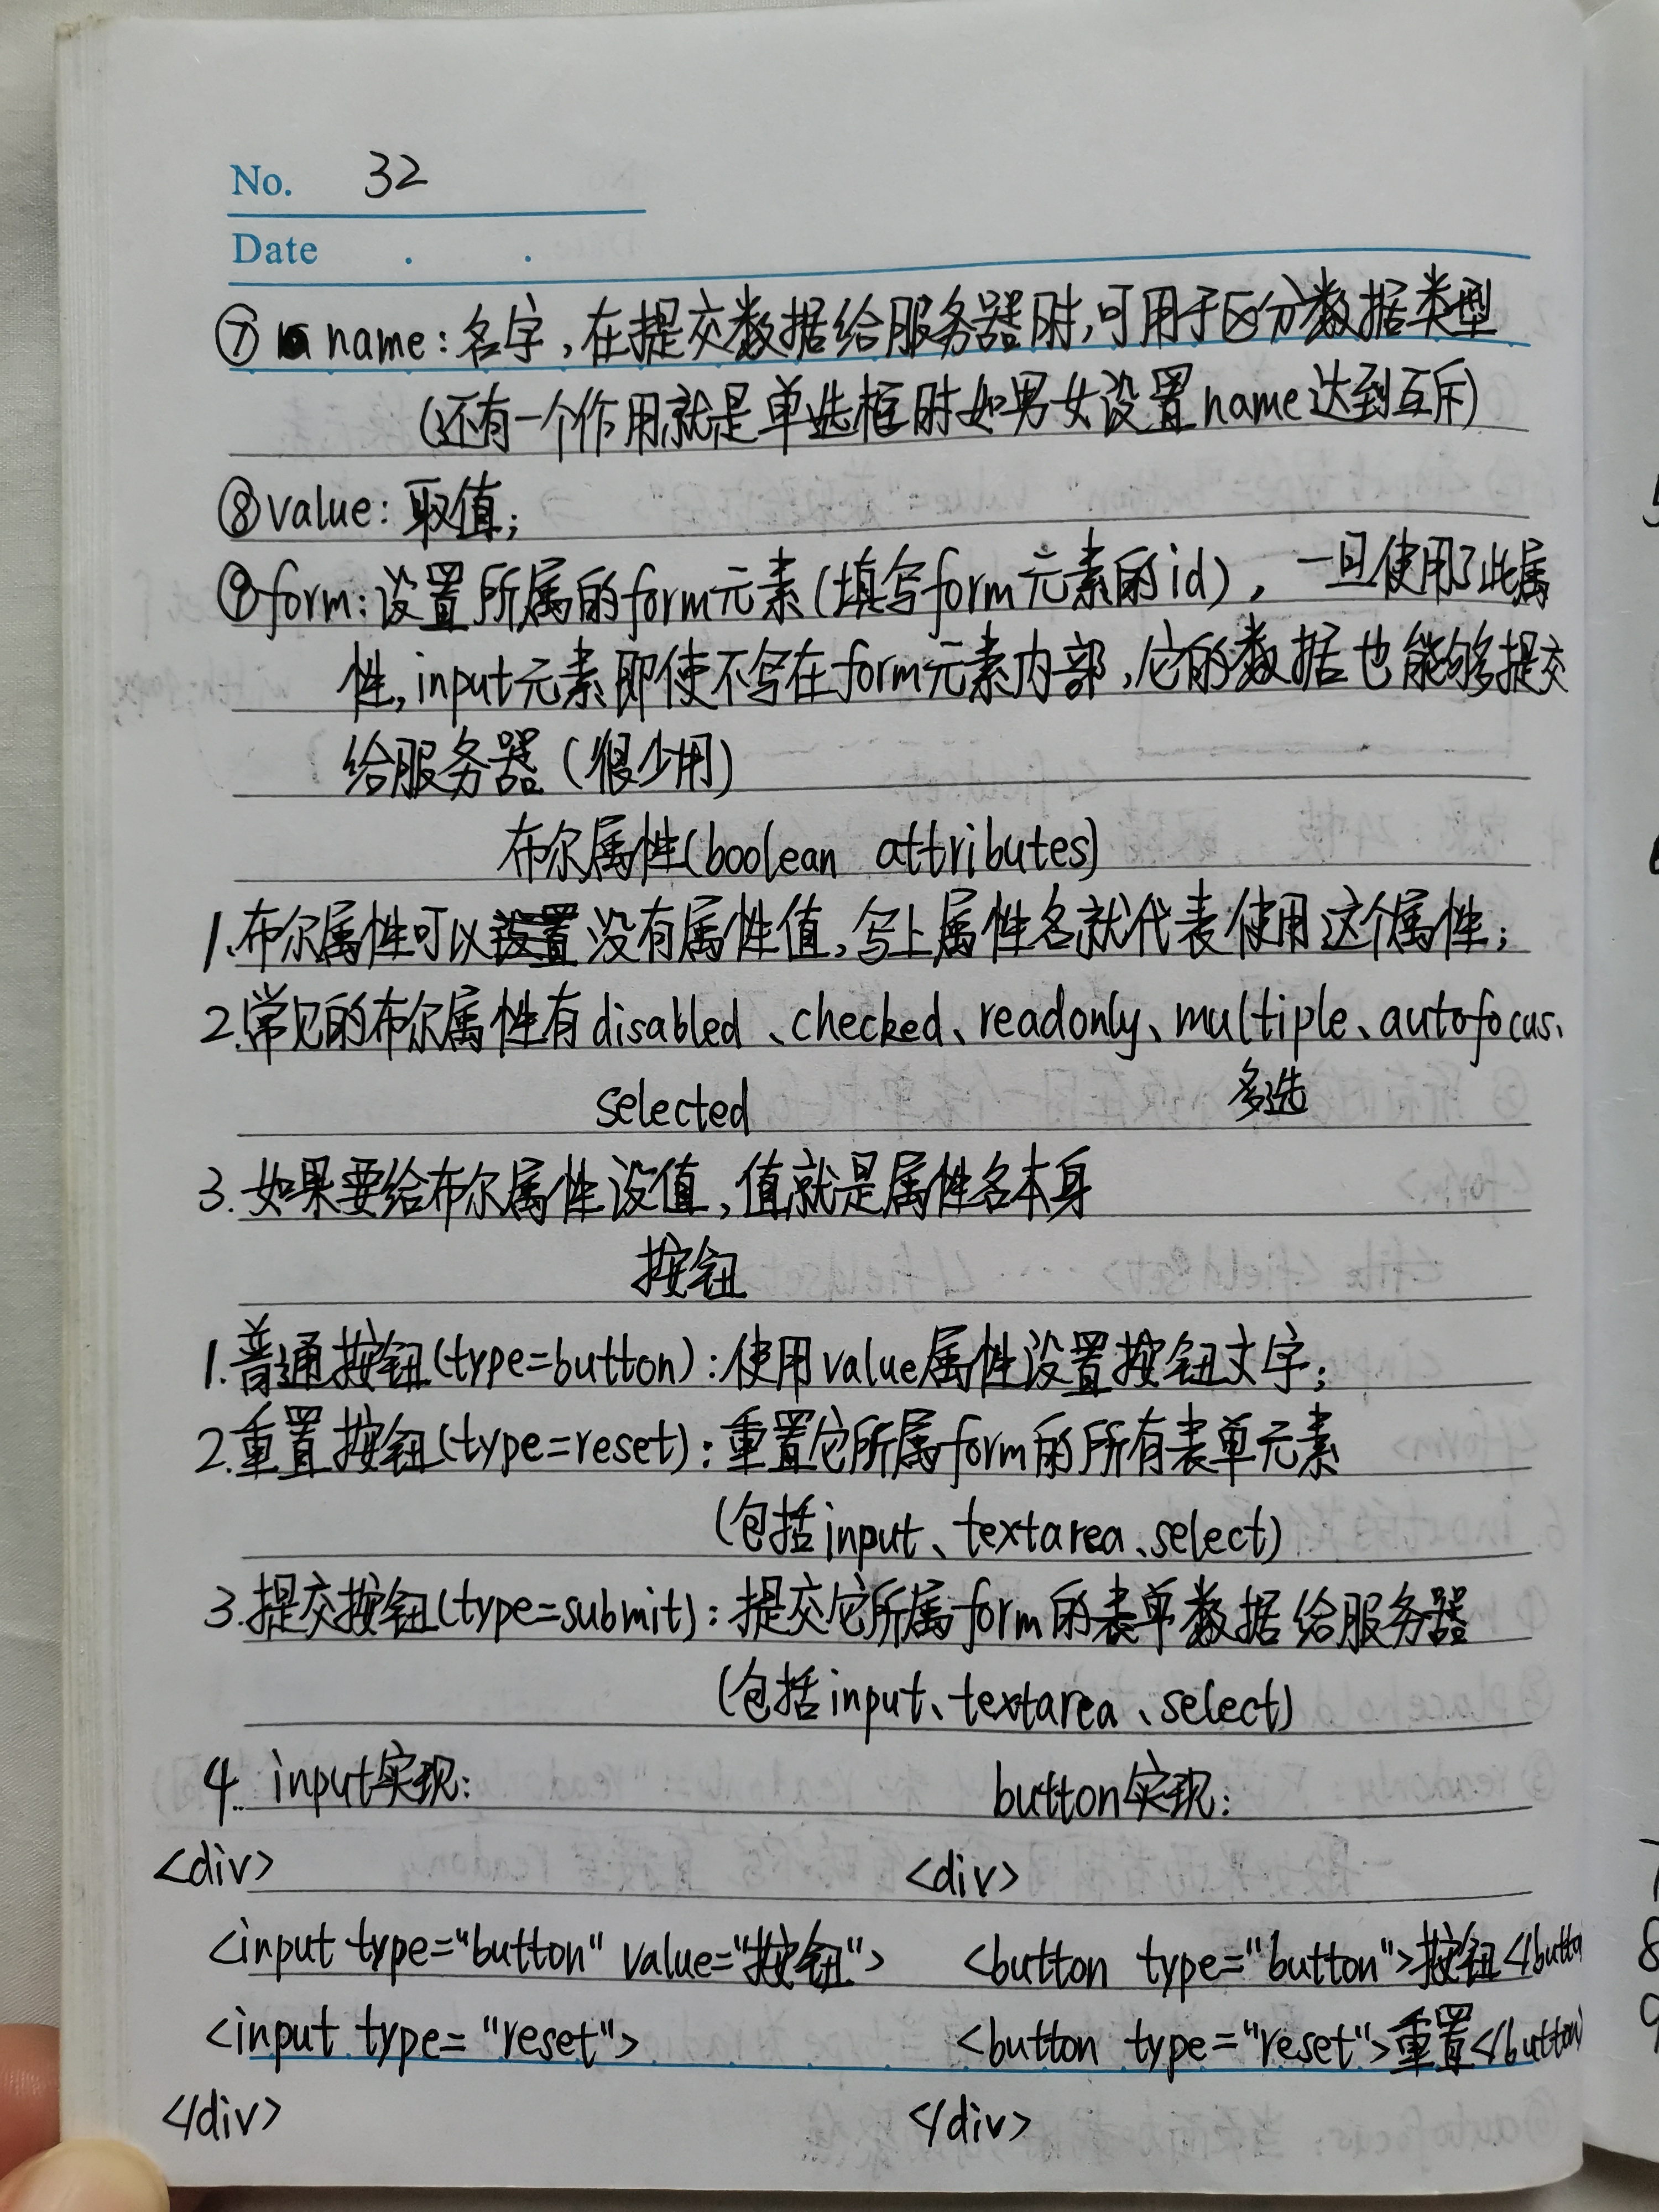 No. 32
Date . .
⑦ name:名字,在提交数据给服务器时,可用于区分数据类型
(还有一个作用就是单选框时如男女设置name达到互斥)
⑧value:取值;
⑨form:设置所属的form元素(填写form元素的id),一旦使用了此属
性,input元素即使不写在form元素内部,它的数据也能够提交
给服务器(很少用)
布尔属性(boolean attributes)
1.布尔属性可以没有属性值,写上属性名就代表使用这个属性;
2.常见的布尔属性有disabled、checked、readonly、multiple、autofocus、
selected 多选
3.如果要给布尔属性设值,值就是属性名本身
按钮
1.普通按钮(type=button):使用value属性设置按钮文字;
2.重置按钮(type=reset):重置它所属form的所有表单元素
(包括input、textarea、select)
3.提交按钮(type=submit):提交它所属form的表单数据给服务器
(包括input、textarea、select)
4. input实现: button实现:
<div> <div>
<input type="button" value="按钮"> <button type="button">按钮</butto
<input type="reset"> <button type="reset">重置</button
</div> </div>